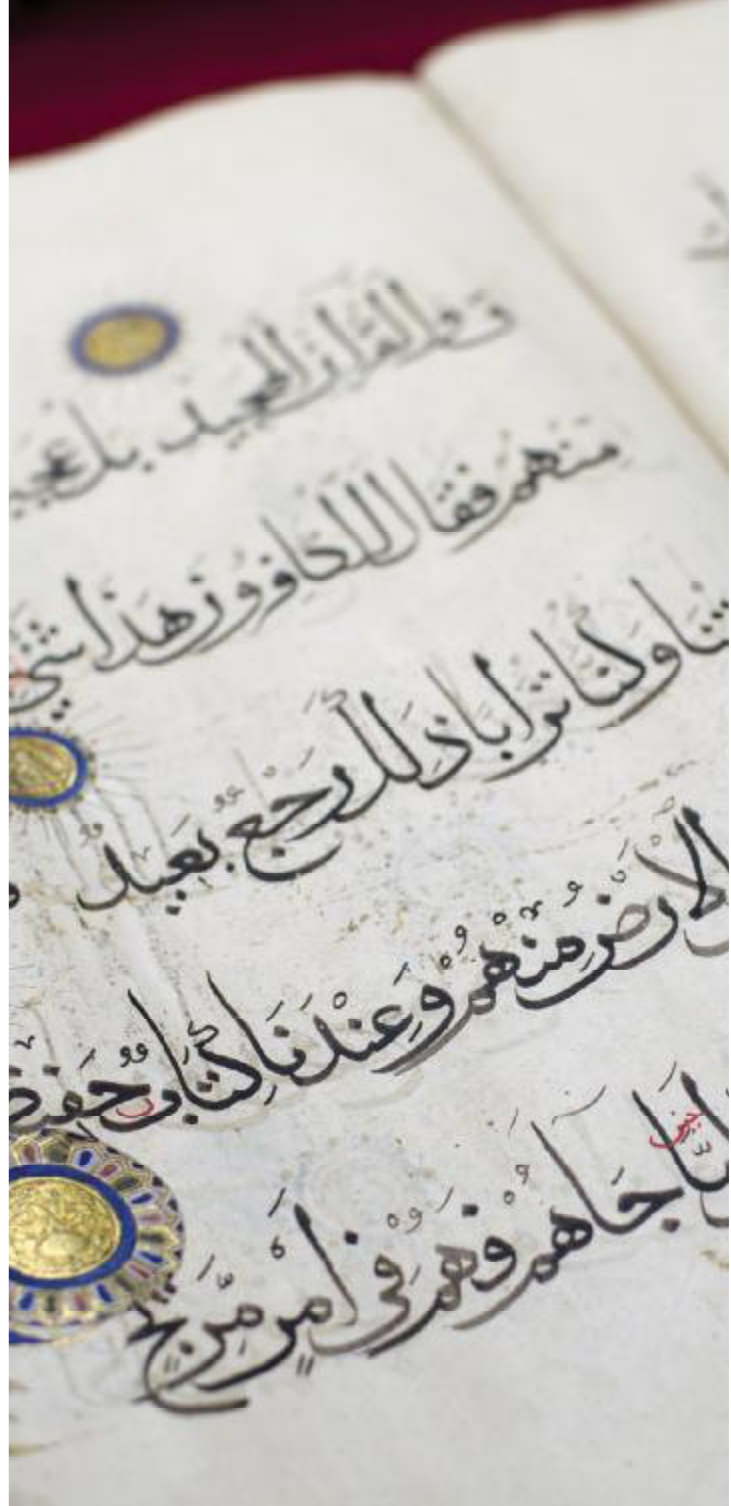 ق وَالقُرْآنِ المَجِيدِ بَل عَجِبُو
مِنْهُمْ فَقَالَ الكَافِرُونَ هَذَا شَيْءٌ
مِتْنَا وَكُنَّا تُرَابًا ذَلِكَ رَجْعٌ بَعِيدٌ
الاَرْضُ مِنْهُمْ وَعِنْدَنَا كِتَابٌ حَفِيظٌ
لَمَّا جَاهُمْ فَهُمْ فِي أَمْرٍ مَّرِيجٍ